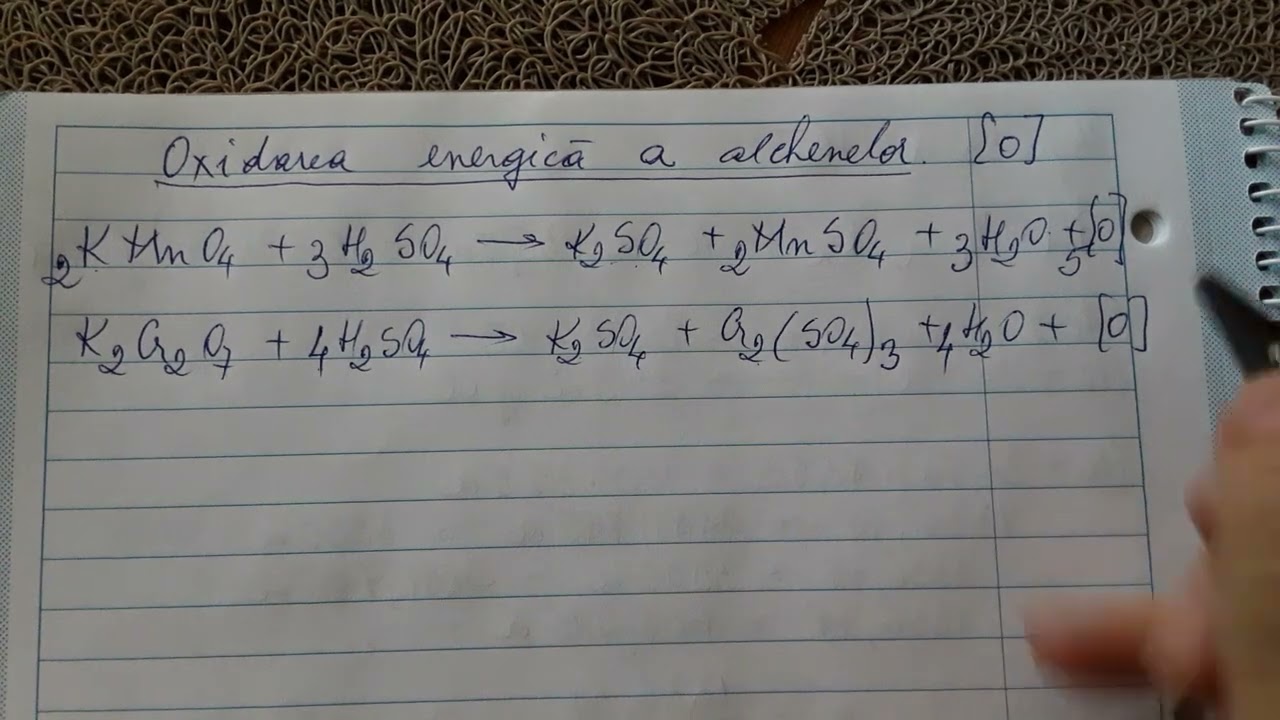 Oxidarea energică a alchenelor. [O]
2KMnO₄ + 3H₂SO₄ → K₂SO₄ + 2MnSO₄ + 3H₂O + 5[O]
K₂Cr₂O₇ + 4H₂SO₄ → K₂SO₄ + Cr₂(SO₄)₃ + 4H₂O + [O]